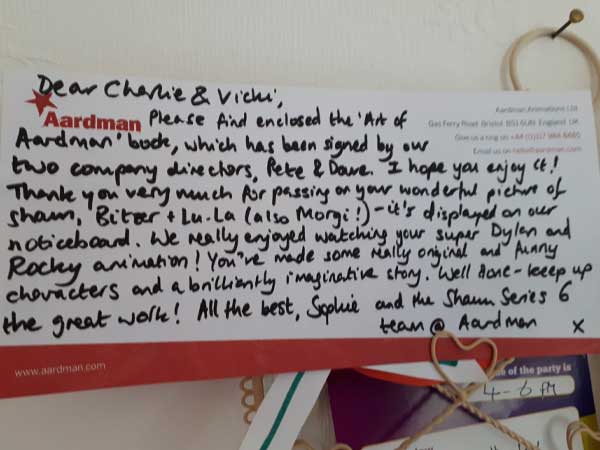 Dear Charlie & Vicki,
Aardman
Aardman Animations Ltd
Gas Ferry Road Bristol BS1 6UN England UK
Give us a ring on +44 (0)117 984 8485
Email us on hello@aardman.com
Please find enclosed the 'Art of
Aardman' book, which has been signed by our
two company directors, Pete & Dave. I hope you enjoy it!
Thank you very much for passing on your wonderful picture of
Shaun, Bitzer + Lu-La (also Morgi!) - it's displayed on our
noticeboard. We really enjoyed watching your super Dylan and
Rocky animation! You've made some really original and funny
characters and a brilliantly imaginative story. Well done - keep up
the great work! All the best, Sophie and the Shaun Series 6
team @ Aardman x
www.aardman.com
e of the party is
4-6 PM